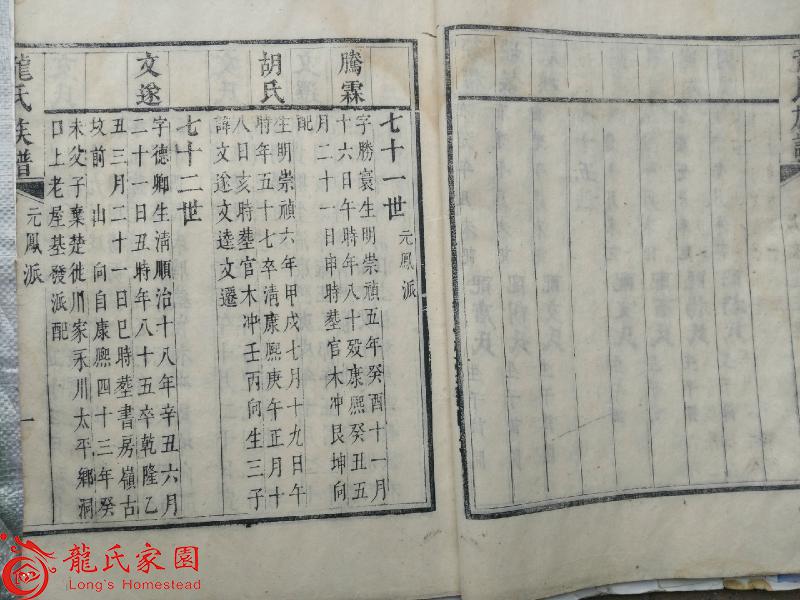 七十一世 元鳳派
騰霖
字勝寰生明崇禎五年癸酉十一月
十六日午時年八十歿康熙癸丑五
月二十一日申時塟官木冲艮坤向
配
胡氏
生明崇禎六年甲戌七月十九日午
時年五十七卒清康熙庚午正月十
八日亥時塟官木冲壬丙向生三子
諱文遂文逵文遷
七十二世
文遂
字德卿生清順治十八年辛丑六月
二十一日丑時年八十五卒乾隆乙
丑三月二十一日巳時塟書房嶺古
坟前山向自康熙四十三年癸
未父子棄楚徙川家永川太平鄉洞
口上老屋基發派配
龍氏族譜
元鳳派
一
龍氏家園
Long's Homestead